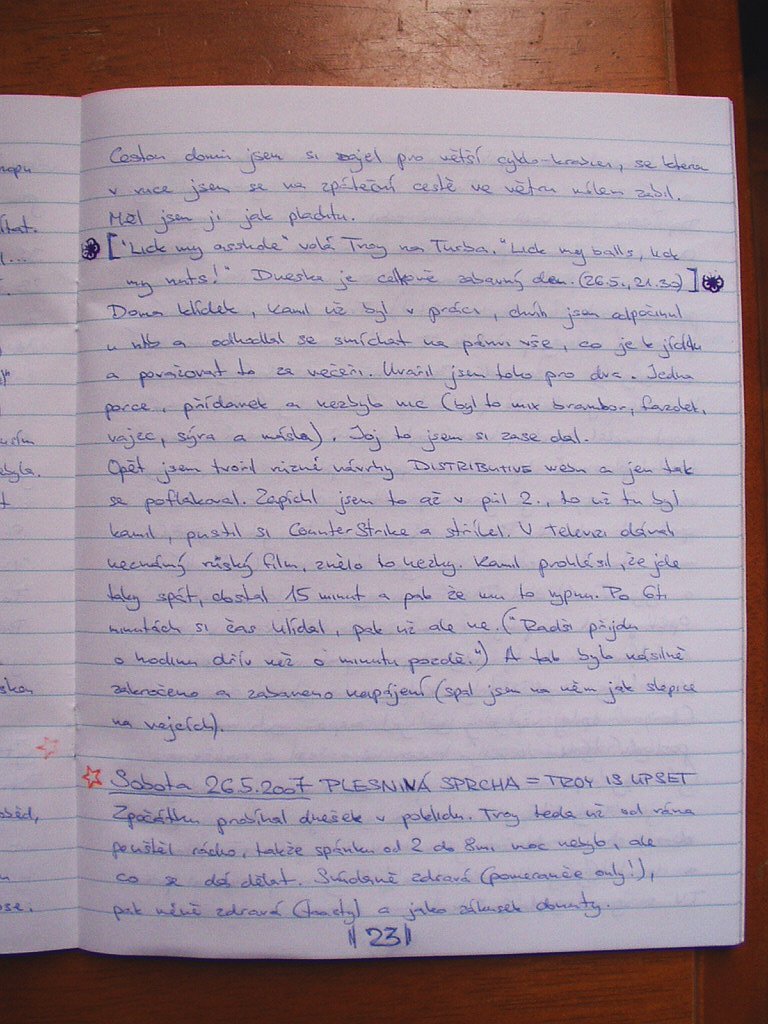 napu
íhat.
l...
usím
byla.
t
skou
oběd,
u
ose.
Cestou domů jsem si zajel pro větší cyklo-krabici, se kterou
v ruce jsem se na zpáteční cestě ve větru málem zabil.
Měl jsem ji jak plachtu.
["Lick my asshole" volá Troy na Turba. "Lick my balls, lick
my nuts!" Dneska je celkově zábavný den. (26.5., 21.37)]
Doma klídek, Kamil už byl v práci, chvíli jsem odpočinul
u ntb a odhodlal se smíchat na pánvi vše, co je k jídlu
a považovat to za večeři. Uvařil jsem toho pro dva. Jedna
porce, přídavek a nezbylo nic (byl to mix brambor, fazolek,
vajec, sýra a másla). Joj to jsem si zase dal.
Opět jsem tvořil různé návrhy DISTRIBUTIVE webu a jen tak
se poflakoval. Zapíchl jsem to až v půl 2., to už tu byl
Kamil, pustil si CounterStrike a střílel. V televizi dávali
neznámý ruský film, znělo to hezky. Kamil prohlásil, že jde
taky spát, dostal 15 minut a pak že mu to vypnu. Po 6ti
minutách si čas hlídal, pak už ale ne ("Radši přijdu
o hodinu dřív než o minutu pozdě.") A tak bylo násilně
zakročeno a zabaveno napájení (spal jsem na něm jak slepice
na vejcích).
Sobota 26.5.2007 PLESNIVÁ SPRCHA = TROY IS UPSET
Zpočátku probíhal dnešek v poklidu. Troy teda už od rána
pouštěl rádio, takže spánku od 2 do 8mi moc nebylo, ale
co se dá dělat. Snídaně zdravá (pomeranče only!),
pak méně zdravá (toasty) a jako zákusek donuty.
23